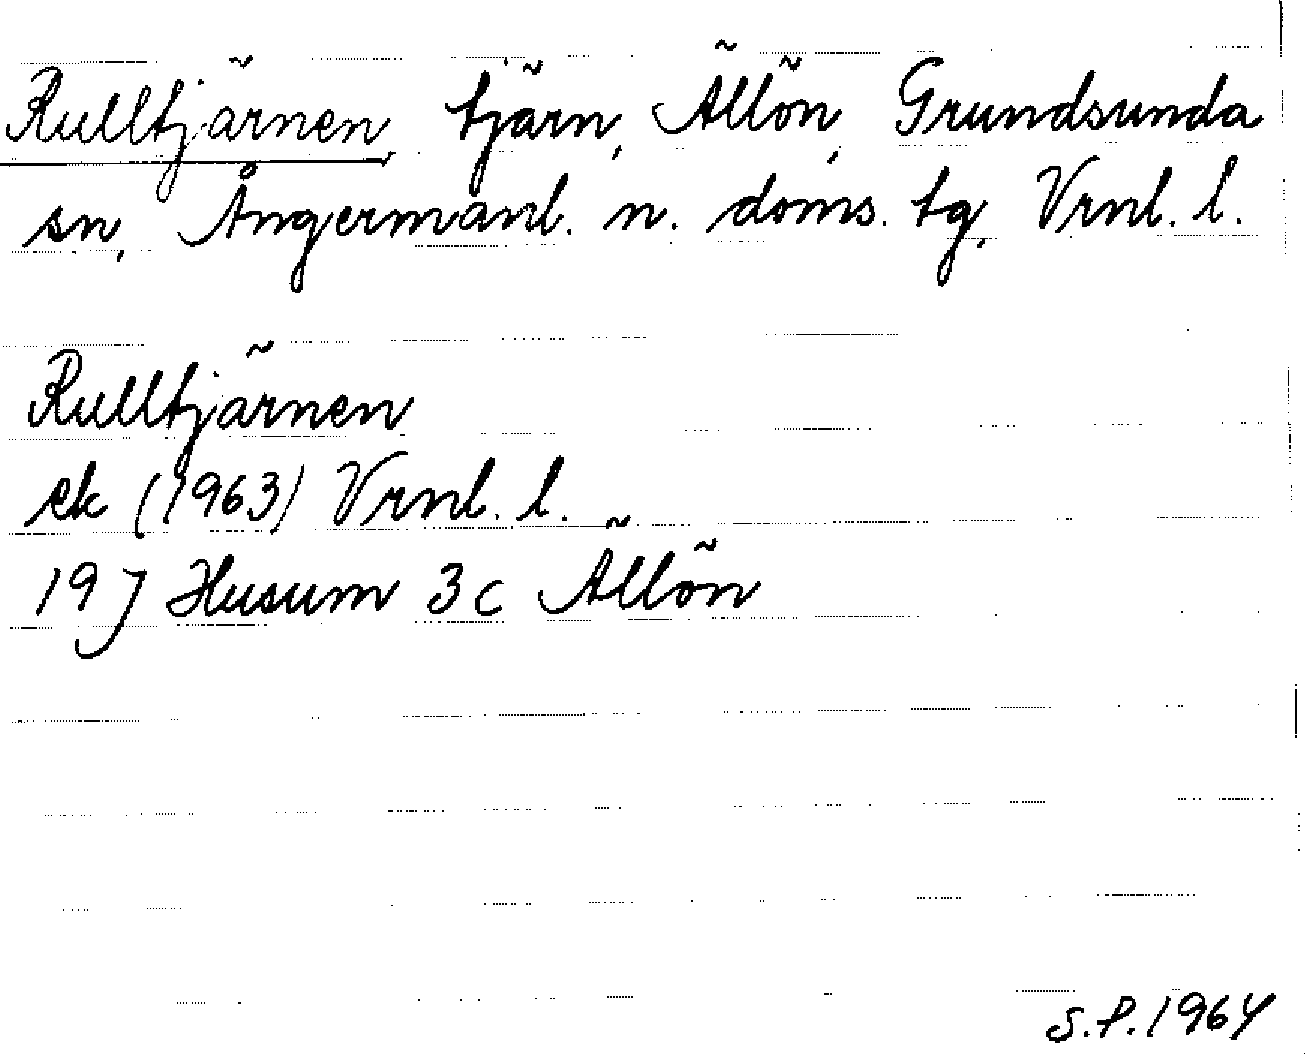 Rulltjärnen, tjärn, Ällön, Grundsunda
sn, Ångermanl. n. doms. tg, Vrnl. l.
Rulltjärnen
ek (1963) Vrnl. l.
19 J Husum 3c Ällön
S.P. 1964